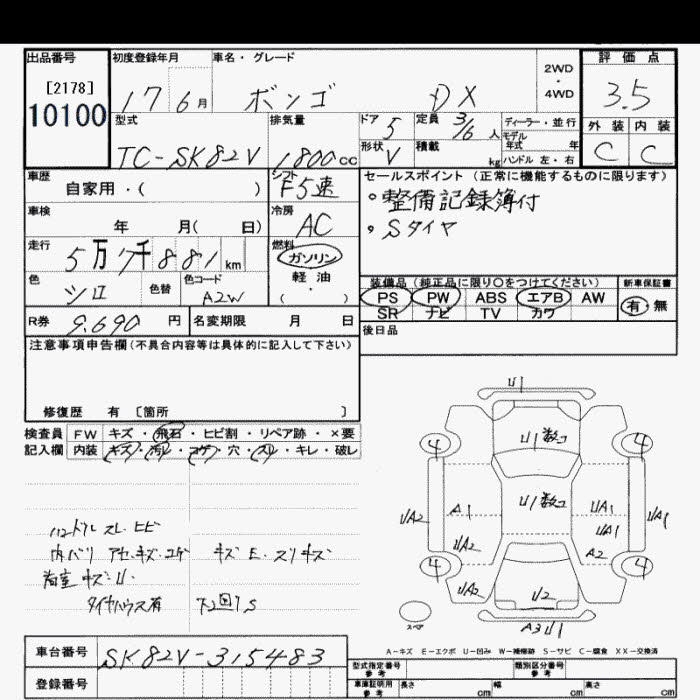 出品番号
[2178]
10100
初度登録年月
17 6月
車名・グレード
ボンゴ DX
2WD
・
4WD
評価点
3.5
外装 内装
C C
型式
TC-SK82V
排気量
1800cc
ドア 5
定員 3/6人
ディーラー・並行
モデル
年式 年
形状 V
積載 kg
ハンドル 左・右
車歴
自家用・( )
シフト
F5速
セールスポイント(正常に機能するものに限ります)
。整備記録簿付
。Sタイヤ
車検
年 月( 日)
冷房
AC
走行
5万7千881km
燃料
ガソリン
軽油・
( )
色
シロ
色替
色コード
A2W
装備品(純正品に限り○をつけてください)
PS PW ABS エアB AW
SR ナビ TV カワ
新車保証書
有・無
R券 9,690円
名変期限 月 日
後日品
注意事項申告欄(不具合内容等は具体的に記入して下さい)
修復歴 有〔箇所 〕
検査員 FW キズ・飛石・ヒビ割・リペア跡・×要
記入欄 内装 キズ・汚レ・コゲ・穴・スレ・キレ・破レ
ハンドル スレ ヒビ
内バリ アセ.キズ.コゲ キズ E.スリキズ
荷室 キズ.U.
タイヤハウス有 下回りS
U1
4 4
U1数コ
A1 U1数コ UA1
UA2 UA1 UA1
UA2 A2
4 4
UA2 U2
A3U1
スペア
A-キズ E-エクボ U-凹み W-補修跡 S-サビ C-腐食 XX-交換済
車台番号 SK82V-315483
登録番号
型式指定番号
参考
類別区分番号
参考
車庫証明用
参考
長さ cm 幅 cm 高さ cm